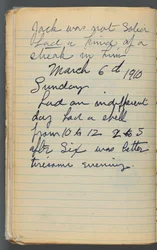 Jack was not Sober
had a kind of a
streak on him
March 6th 1910
Sunday
had an indifferent
day had a spell
from 10 to 12 2 to 5
after Six was better
tiresome evening.